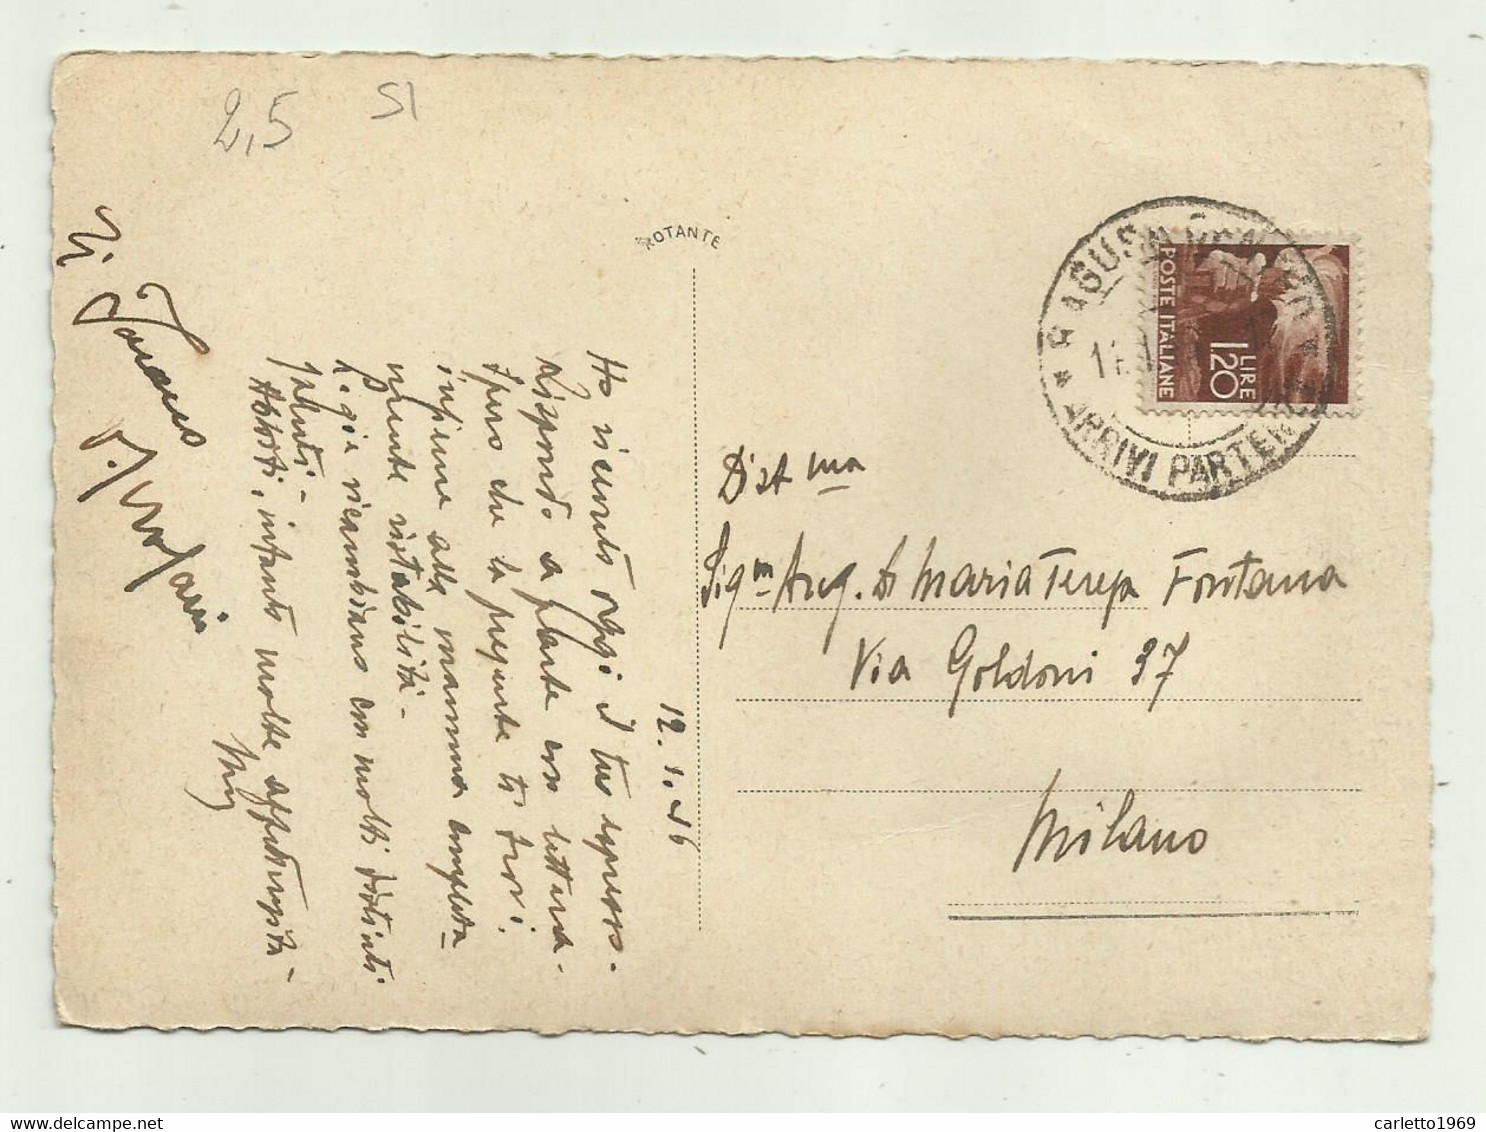 2,5
SI
ROTANTE
12.1.46
Ho ricevuto oggi il tuo espresso.
Rispondo a parte con lettera.
Spero che la presente ti trovi
insieme alla mamma completa
mente ristabilita.
Luigia ricambiano con molti distinti
saluti.
Abbiti, intanto molte affettuosità
Ti
RAGUSA
ARRIVI PARTENZE
POSTE ITALIANE
LIRE
1.20
Dist ma
Sig.na Ing. Maria Teresa Fontana
Via Goldoni 37
Milano
carletto1969